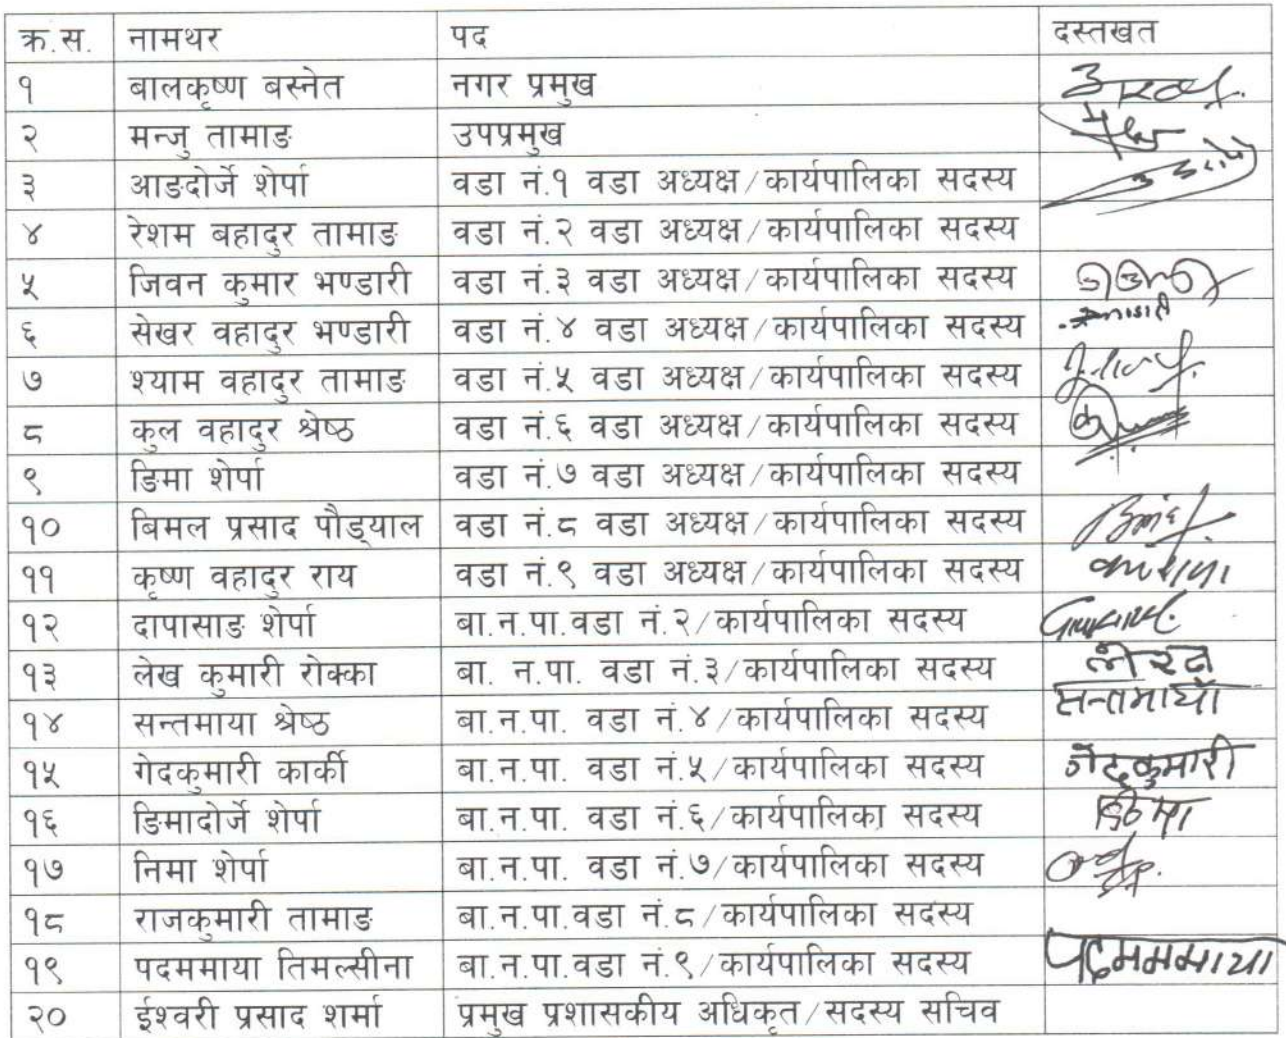 क्र.स. नामथर पद दस्तखत
१ बालकृष्ण बस्नेत नगर प्रमुख
२ मन्जु तामाङ उपप्रमुख
३ आङदोर्जे शेर्पा वडा नं.१ वडा अध्यक्ष/कार्यपालिका सदस्य
४ रेशम बहादुर तामाङ वडा नं.२ वडा अध्यक्ष/कार्यपालिका सदस्य
५ जिवन कुमार भण्डारी वडा नं.३ वडा अध्यक्ष/कार्यपालिका सदस्य
६ सेखर वहादुर भण्डारी वडा नं.४ वडा अध्यक्ष/कार्यपालिका सदस्य
७ श्याम वहादुर तामाङ वडा नं.५ वडा अध्यक्ष/कार्यपालिका सदस्य
८ कुल वहादुर श्रेष्ठ वडा नं.६ वडा अध्यक्ष/कार्यपालिका सदस्य
९ ङिमा शेर्पा वडा नं.७ वडा अध्यक्ष/कार्यपालिका सदस्य
१० बिमल प्रसाद पौड्याल वडा नं.८ वडा अध्यक्ष/कार्यपालिका सदस्य
११ कृष्ण वहादुर राय वडा नं.९ वडा अध्यक्ष/कार्यपालिका सदस्य
१२ दापासाङ शेर्पा बा.न.पा.वडा नं.२/कार्यपालिका सदस्य
१३ लेख कुमारी रोक्का बा. न.पा. वडा नं.३/कार्यपालिका सदस्य
१४ सन्तमाया श्रेष्ठ बा.न.पा. वडा नं.४/कार्यपालिका सदस्य सन्तमायाँ
१५ गेदकुमारी कार्की बा.न.पा. वडा नं.५/कार्यपालिका सदस्य गेदकुमारी
१६ ङिमादोर्जे शेर्पा बा.न.पा. वडा नं.६/कार्यपालिका सदस्य
१७ निमा शेर्पा बा.न.पा. वडा नं.७/कार्यपालिका सदस्य
१८ राजकुमारी तामाङ बा.न.पा.वडा नं.८/कार्यपालिका सदस्य
१९ पदममाया तिमल्सीना बा.न.पा.वडा नं.९/कार्यपालिका सदस्य
२० ईश्वरी प्रसाद शर्मा प्रमुख प्रशासकीय अधिकृत/सदस्य सचिव